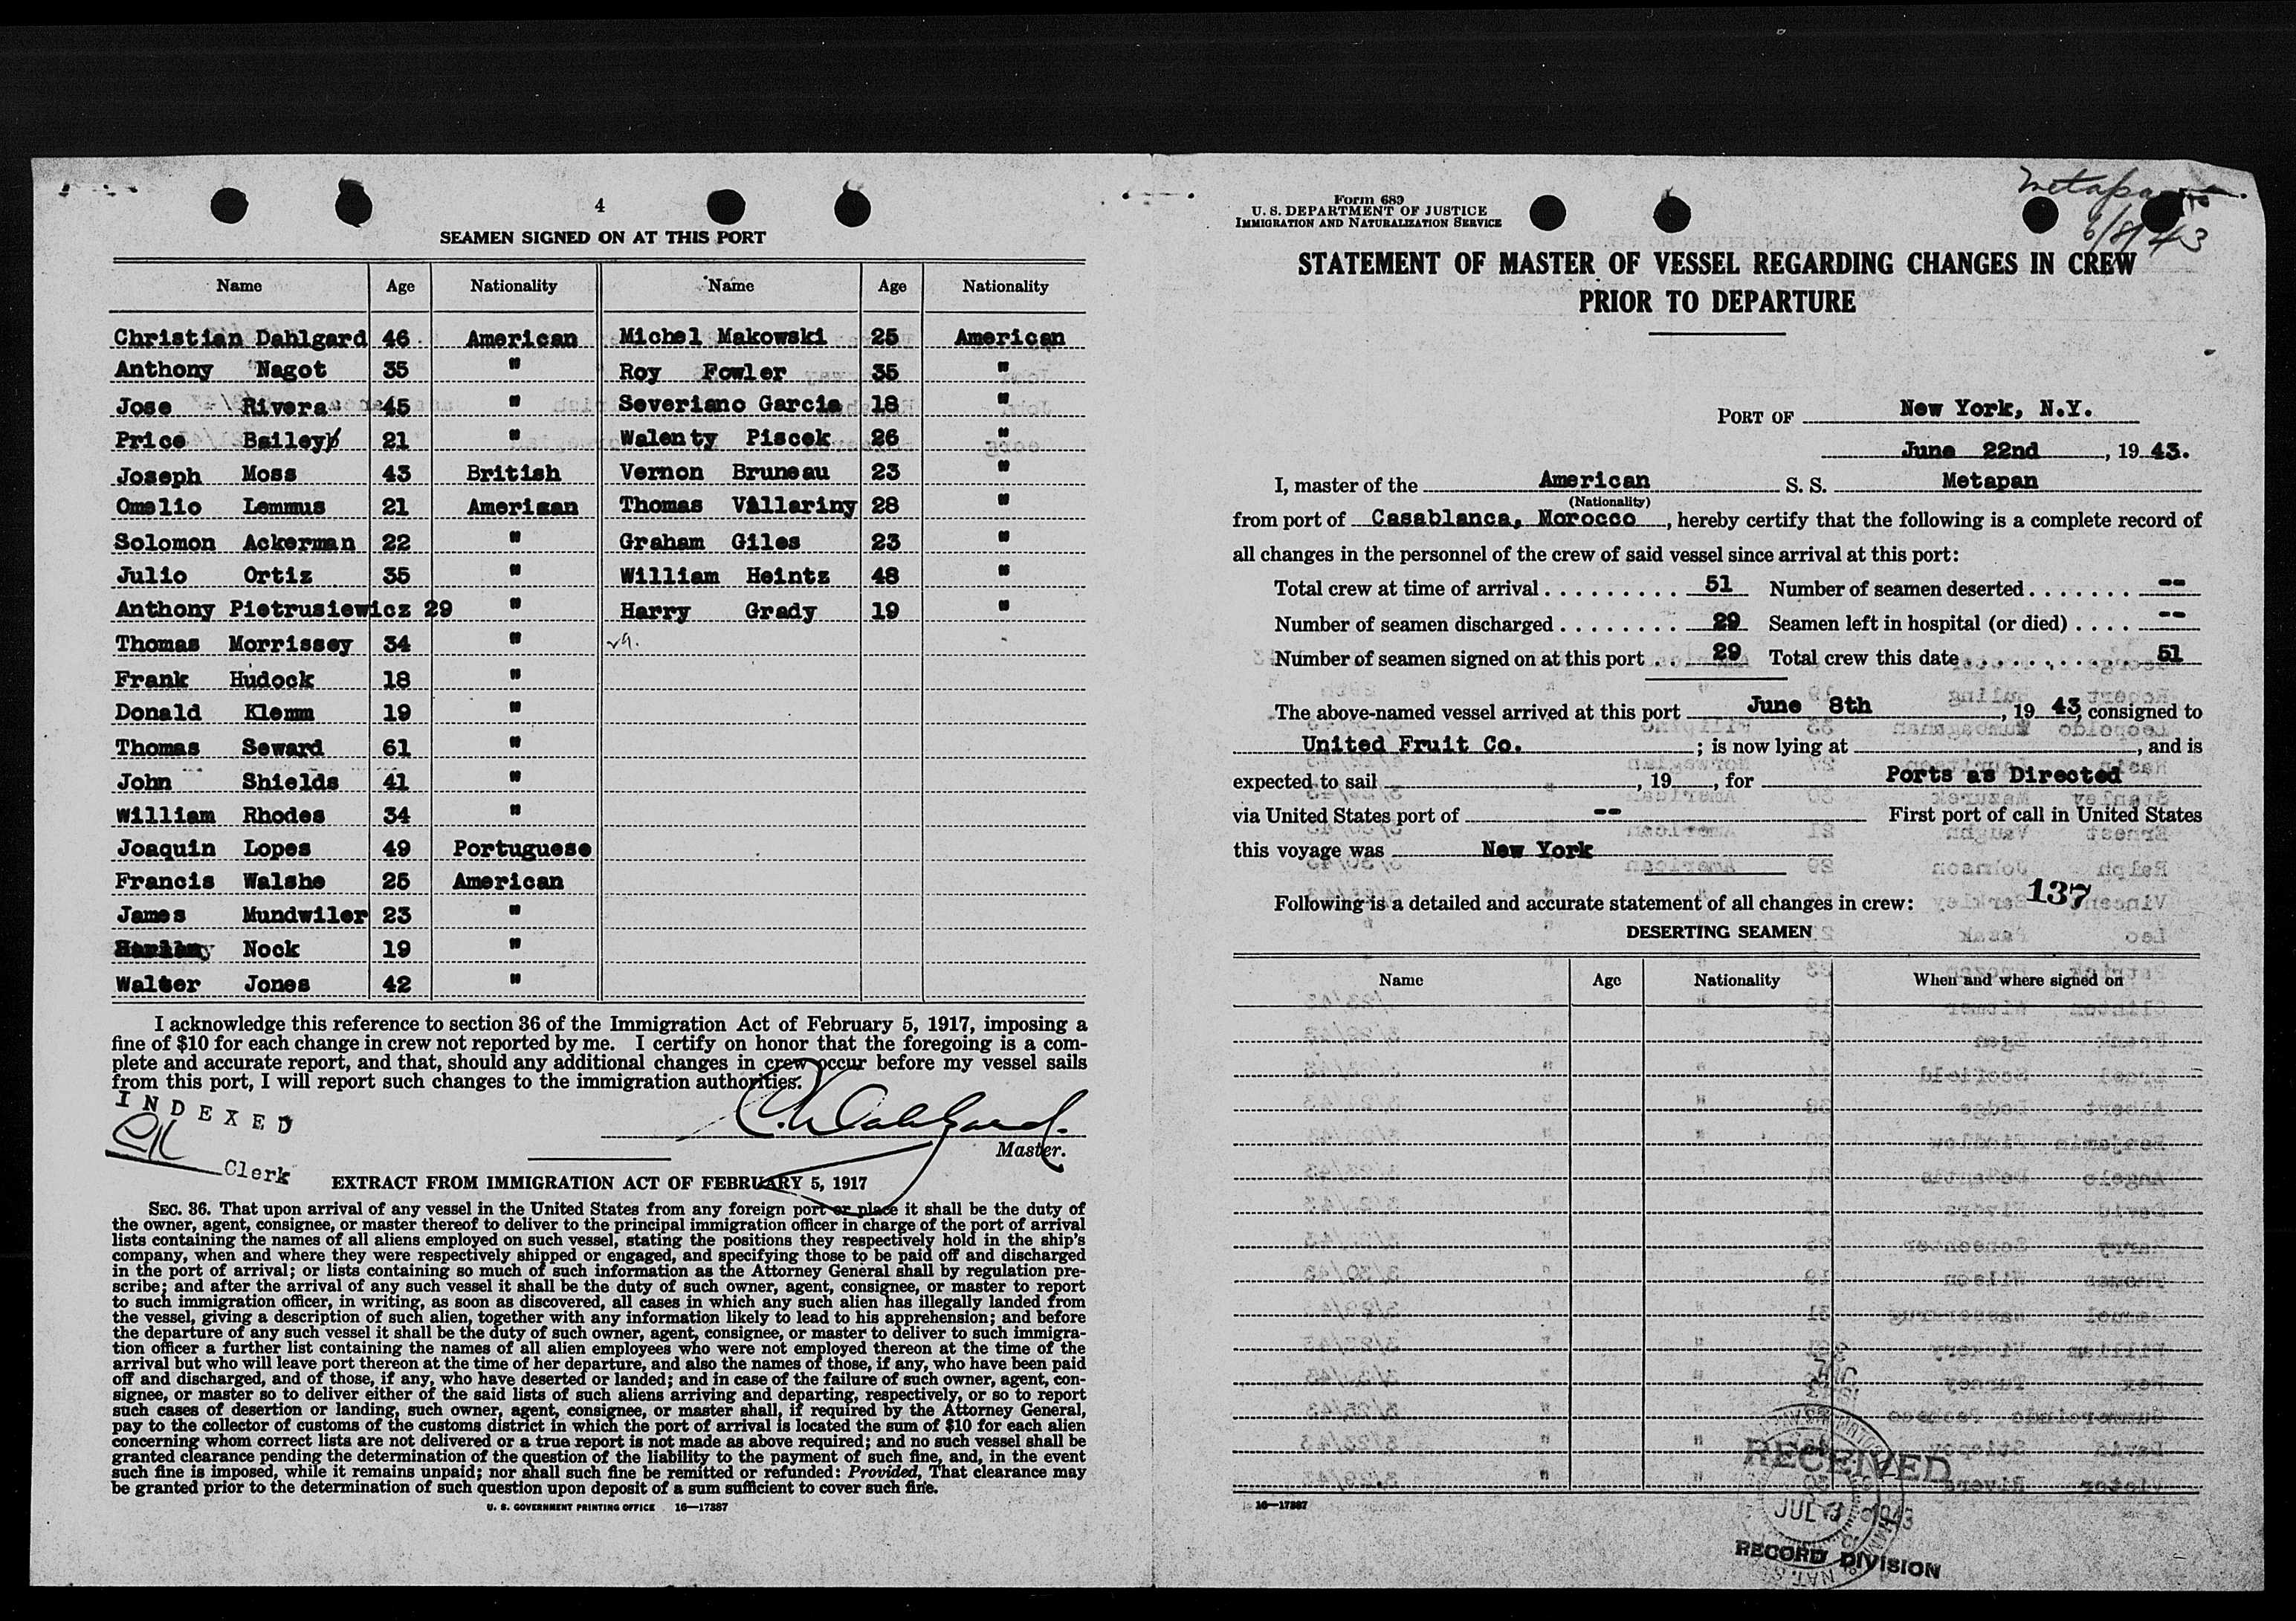 4
SEAMEN SIGNED ON AT THIS PORT
Name Age Nationality Name Age Nationality
Christian Dahlgard 46 American Michel Makowski 25 American
Anthony Nagot 35 " Roy Fowler 35 "
Jose Rivera 45 " Severiano Garcia 18 "
Price Bailey 21 " Walenty Piscek 26 "
Joseph Moss 43 British Vernon Bruneau 23 "
Omelio Lemmus 21 American Thomas Vallariny 28 "
Solomon Ackerman 22 " Graham Giles 23 "
Julio Ortiz 35 " William Heintz 48 "
Anthony Pietrusiewicz 29 " Harry Grady 19 "
Thomas Morrissey 34 " 29.
Frank Hudock 18 "
Donald Klemm 19 "
Thomas Seward 61 "
John Shields 41 "
William Rhodes 34 "
Joaquin Lopes 49 Portuguese
Francis Walshe 25 American
James Mundwiler 23 "
Nock 19 "
Walter Jones 42 "
I acknowledge this reference to section 36 of the Immigration Act of February 5, 1917, imposing a
fine of $10 for each change in crew not reported by me. I certify on honor that the foregoing is a com-
plete and accurate report, and that, should any additional changes in crew occur before my vessel sails
from this port, I will report such changes to the immigration authorities.
INDEXED
C. Dahlgard.
Master.
Clerk
EXTRACT FROM IMMIGRATION ACT OF FEBRUARY 5, 1917
SEC. 36. That upon arrival of any vessel in the United States from any foreign port or place it shall be the duty of
the owner, agent, consignee, or master thereof to deliver to the principal immigration officer in charge of the port of arrival
lists containing the names of all aliens employed on such vessel, stating the positions they respectively hold in the ship's
company, when and where they were respectively shipped or engaged, and specifying those to be paid off and discharged
in the port of arrival; or lists containing so much of such information as the Attorney General shall by regulation pre-
scribe; and after the arrival of any such vessel it shall be the duty of such owner, agent, consignee, or master to report
to such immigration officer, in writing, as soon as discovered, all cases in which any such alien has illegally landed from
the vessel, giving a description of such alien, together with any information likely to lead to his apprehension; and before
the departure of any such vessel it shall be the duty of such owner, agent, consignee, or master to deliver to such immigra-
tion officer a further list containing the names of all alien employees who were not employed thereon at the time of the
arrival but who will leave port thereon at the time of her departure, and also the names of those, if any, who have been paid
off and discharged, and of those, if any, who have deserted or landed; and in case of the failure of such owner, agent, con-
signee, or master so to deliver either of the said lists of such aliens arriving and departing, respectively, or so to report
such cases of desertion or landing, such owner, agent, consignee, or master shall, if required by the Attorney General,
pay to the collector of customs of the customs district in which the port of arrival is located the sum of $10 for each alien
concerning whom correct lists are not delivered or a true report is not made as above required; and no such vessel shall be
granted clearance pending the determination of the question of the liability to the payment of such fine, and, in the event
such fine is imposed, while it remains unpaid; nor shall such fine be remitted or refunded: Provided, That clearance may
be granted prior to the determination of such question upon deposit of a sum sufficient to cover such fine.
U. S. GOVERNMENT PRINTING OFFICE 16—17387
Metapan
6/8/43
Form 689
U. S. DEPARTMENT OF JUSTICE
IMMIGRATION AND NATURALIZATION SERVICE
STATEMENT OF MASTER OF VESSEL REGARDING CHANGES IN CREW
PRIOR TO DEPARTURE
PORT OF New York, N.Y.
June 22nd, 19 43.
I, master of the American S. S. Metapan
(Nationality)
from port of Casablanca, Morocco, hereby certify that the following is a complete record of
all changes in the personnel of the crew of said vessel since arrival at this port:
Total crew at time of arrival 51 Number of seamen deserted --
Number of seamen discharged 29 Seamen left in hospital (or died) --
Number of seamen signed on at this port 29 Total crew this date 51
The above-named vessel arrived at this port June 8th, 19 43, consigned to
United Fruit Co. ; is now lying at , and is
expected to sail , 19 , for Ports as Directed
via United States port of -- First port of call in United States
this voyage was New York
Following is a detailed and accurate statement of all changes in crew: 137
DESERTING SEAMEN
Name Age Nationality When and where signed on
RECEIVED
JUL 1943
RECORD DIVISION
16—17387